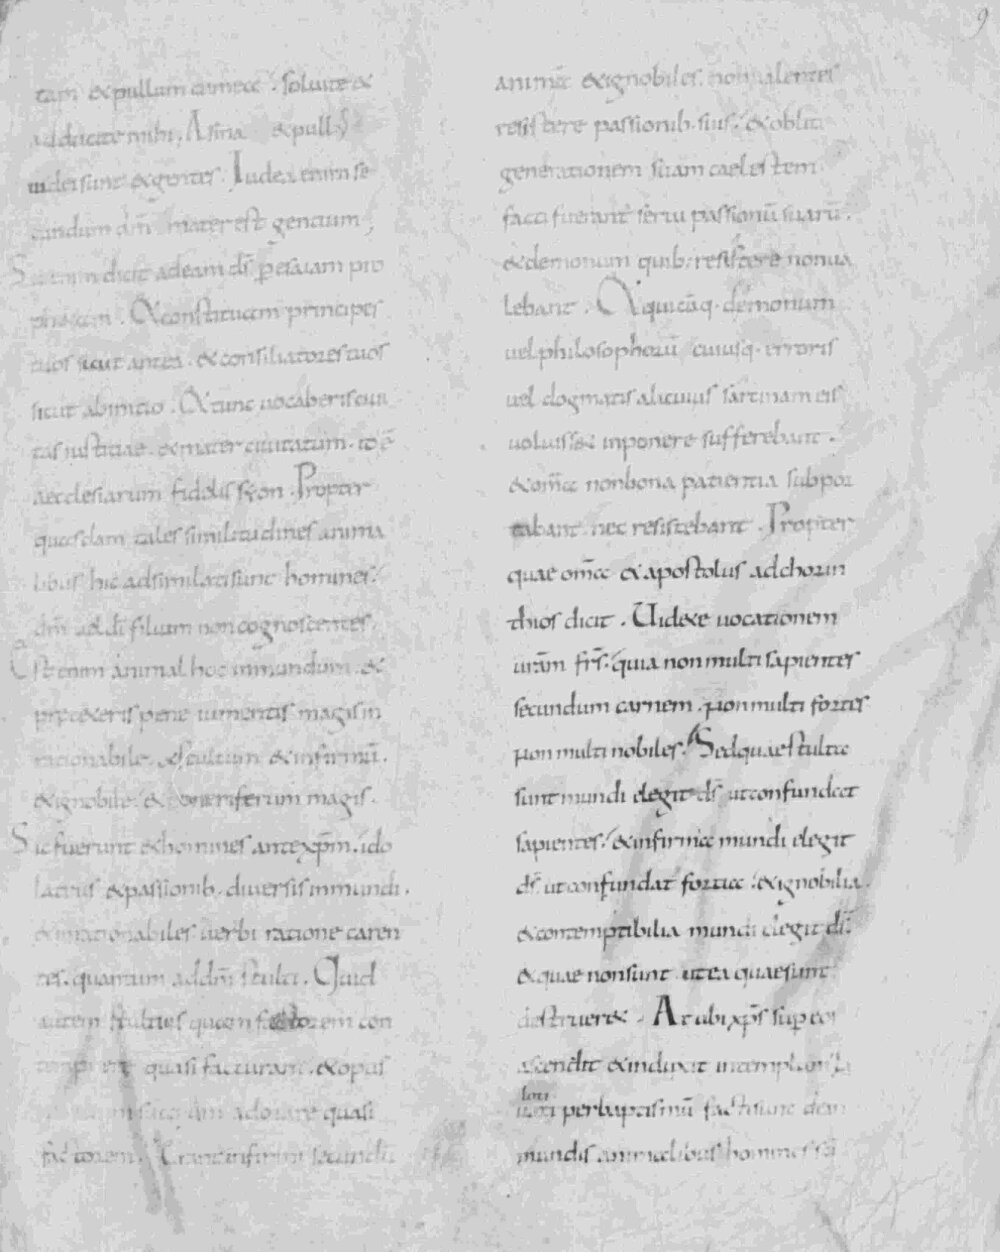 9
tam &pullum cum ea. soluite &
adducite mihi, Asina &pullus
iudei sunt & gentes. Iudea enim se
cundum dm̄ mater est gentium,
dicit ad eam ds̄ per esaiam pro
ph&am. &constituam principes
tuos sicut antea. &consiliatores tuos
sicut ab initio. &tunc uocaberis ciui
tas iustitiae. &mater ciuitatum. id ē
aecclesiarum fidelis syon. Propter
quasdam tales similitudines anima
libus hic adsimilati sunt homines.
dm̄ ac dī filium non cognoscentes,
Est enim animal hoc inmundum. &
prae c&eris pene iumentis magis in
rationabile. &stultum &infirmū.
&ignobile. &oneriferum magis.
Sic fuerunt &homines ante xp̄m. ido
latriis &passionib. diuersis inmundi.
&inrationabiles uerbi ratione caren
tes. quantum ad dm̄ stulti. Quid
autem stultius quam factorem con
quasi facturam. &opus
adorare quasi
factorem. Erant infirmi secundū
animā &ignobiles. non ualentes
resistere passionib. suis. &obliti
generationem suam caelestem
facti fuerant serui passionū suarū.
&demonum quib. resistere non ua
lebant. &quicūq. demonum
uel philosophorū cuiusq. erroris
uel dogmatis alicuius sarcinam eis
uoluiss& inponere sufferebant.
&om̄a non bona patientia subpor
tabant. nec resistebant. Propter
quae om̄a &apostolus ad chorin
thios dicit. Uid&e uocationem
uram̄ frs̄. quia non multi sapientes
secundum carnem. non multi fortes
non multi nobiles. Sed quae stulta
sunt mundi elegit ds̄ ut confundat
sapientes. &infirma mundi elegit
ds̄ ut confundat fortia. &ignobilia.
&contemptibilia mundi elegit ds̄.
&quae non sunt ut ea quae sunt
destruer&. At ubi xp̄s super eos
ascendit &induxit in templum
loti
per baptismū facti sunt de in
mundis animalibus homines